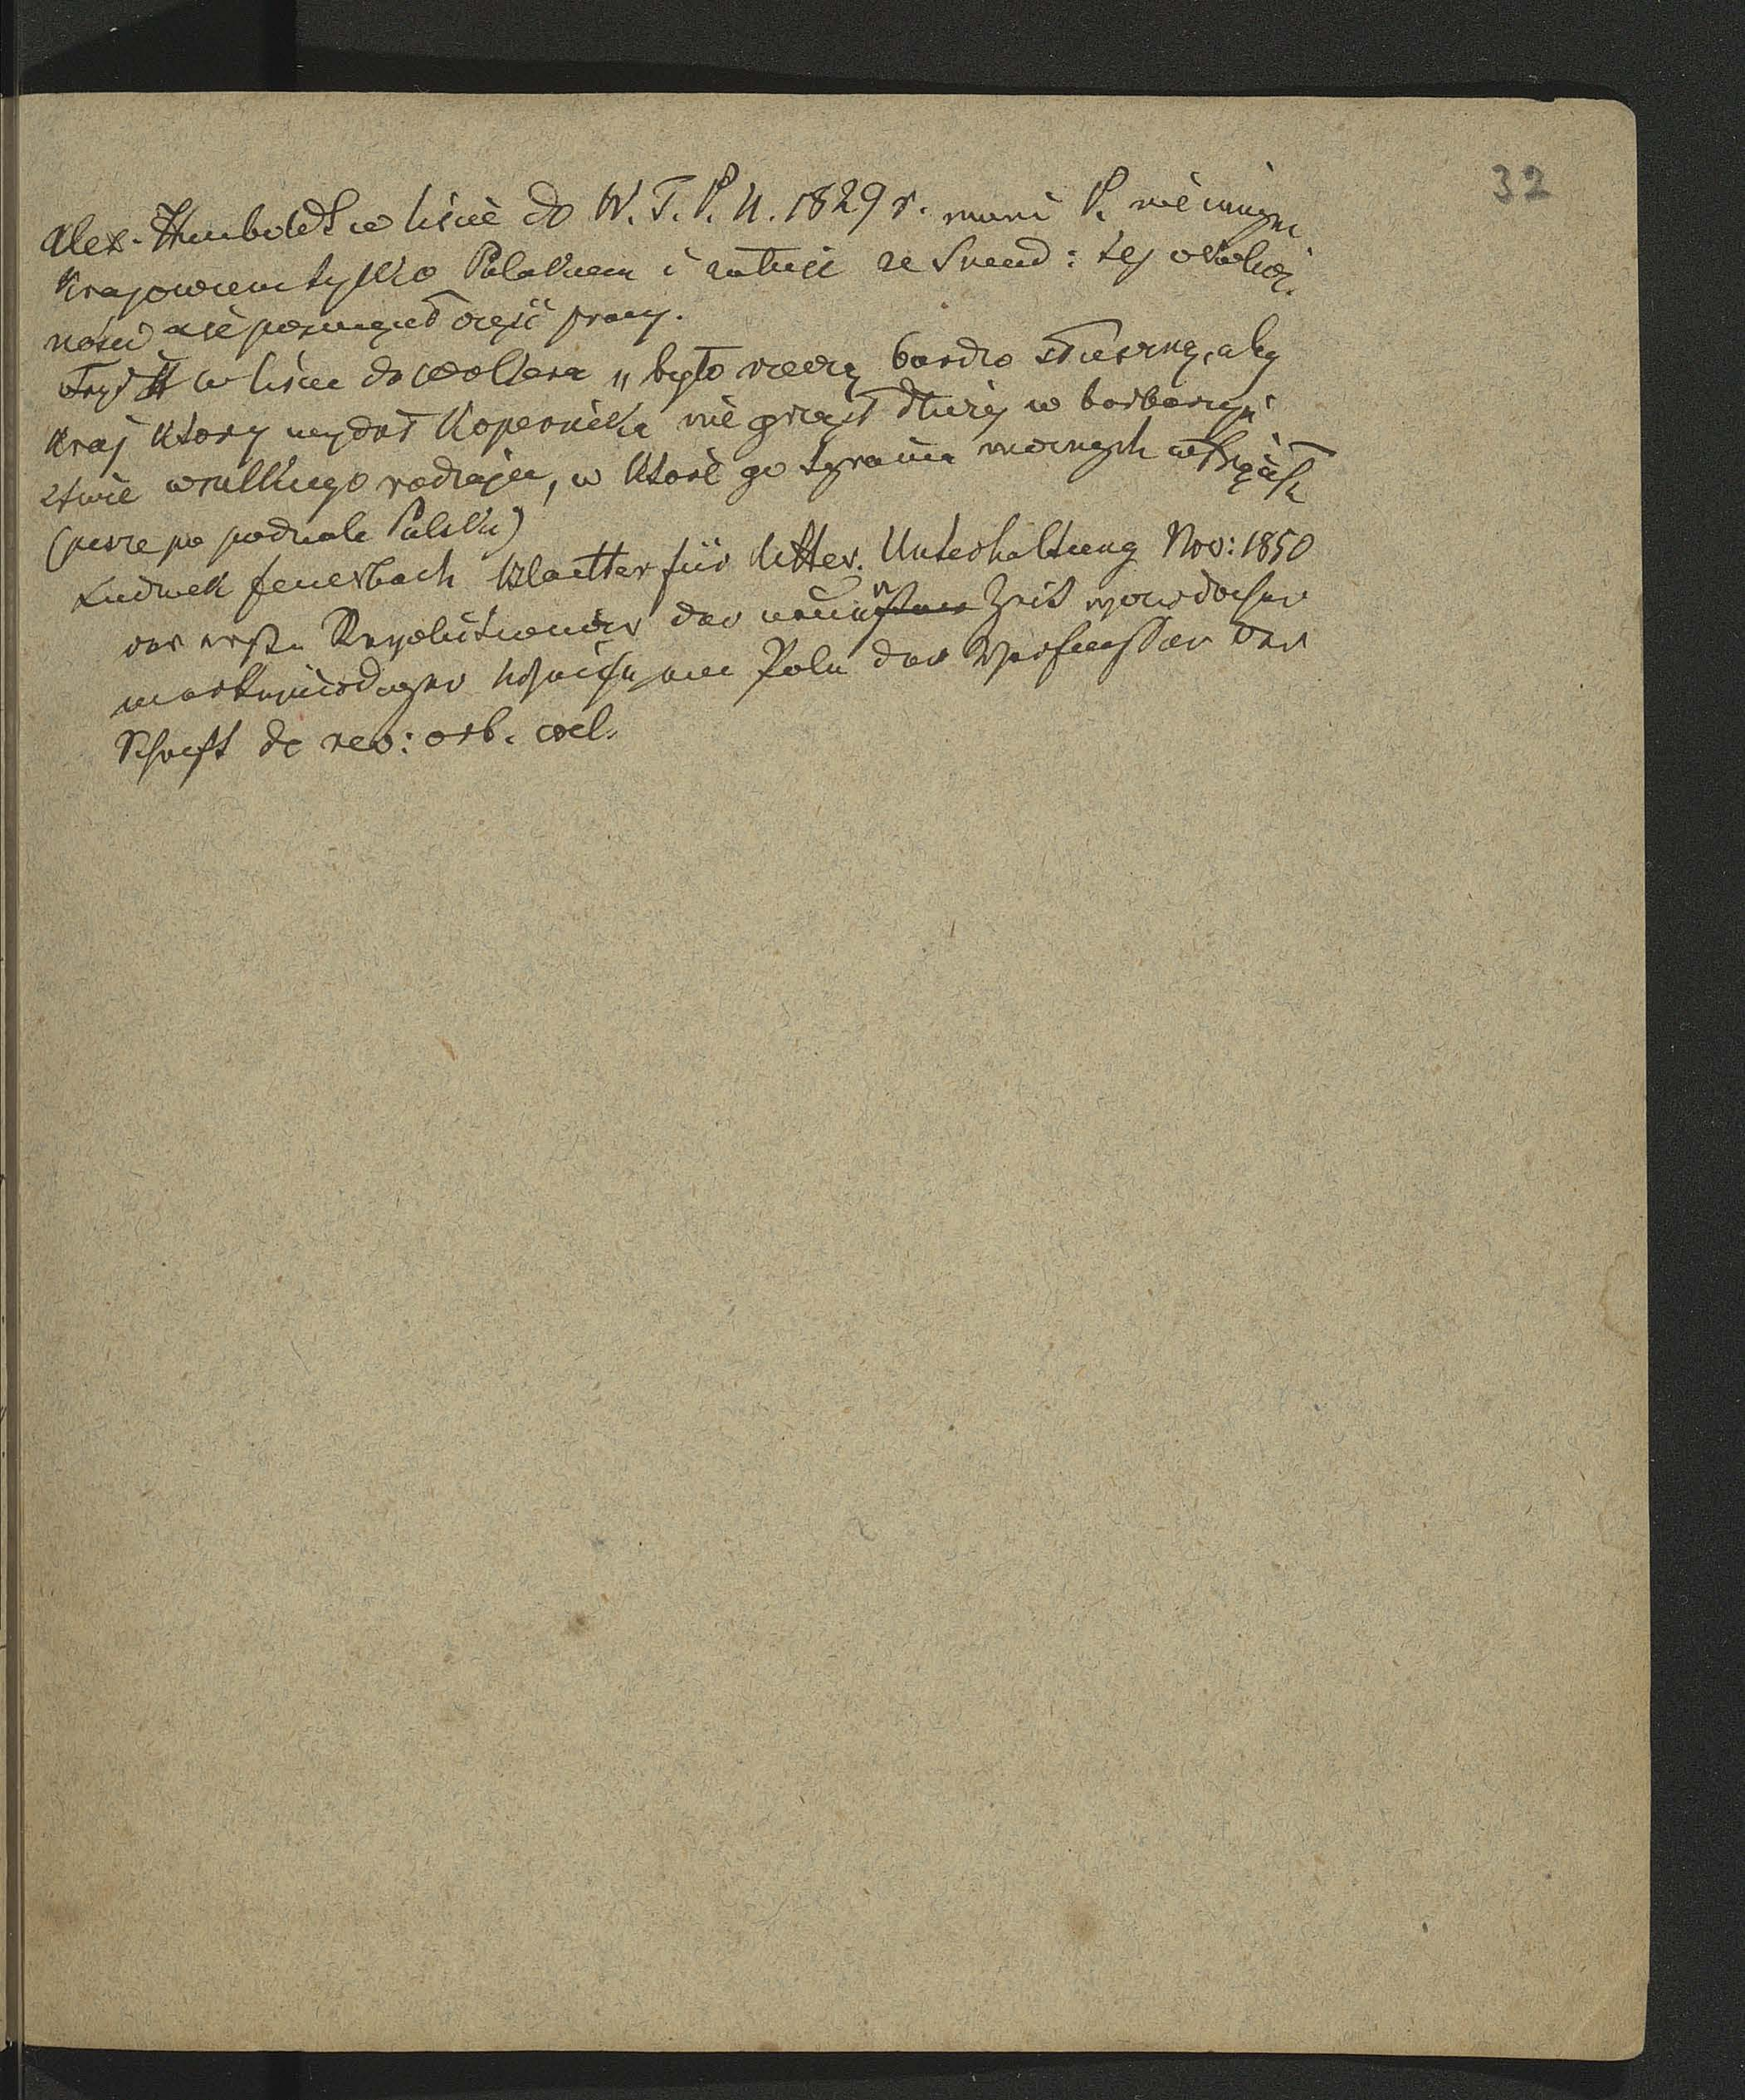 32
Alex. Humboldt w liscie do W. T. P. N. 1829 r. mieni K. nie innym
Krajowcem tylko Polakiem i żałuje ze Sniad: tej okolicz.
ności nie poswięcił części pracy.
Fryd II w liscie do Woltera „było rzeczą bardzo słuszną, aby
kraj ktory wydał Kopernika nie grązł dłużej w barbarzyń
stwie wszelkiego rodzaju, w ktore go tyrania mocnych wtrąciła
(pisze po podziale Polski)
Ludwik Feuerbach Blaetter für litter. Unterhaltung Nov: 1850
der erste Revolutionär der neuern Zeit war der
merkwürdiger Weise ein Pole der Verfasser der
Schrift de rev: orb. coel.